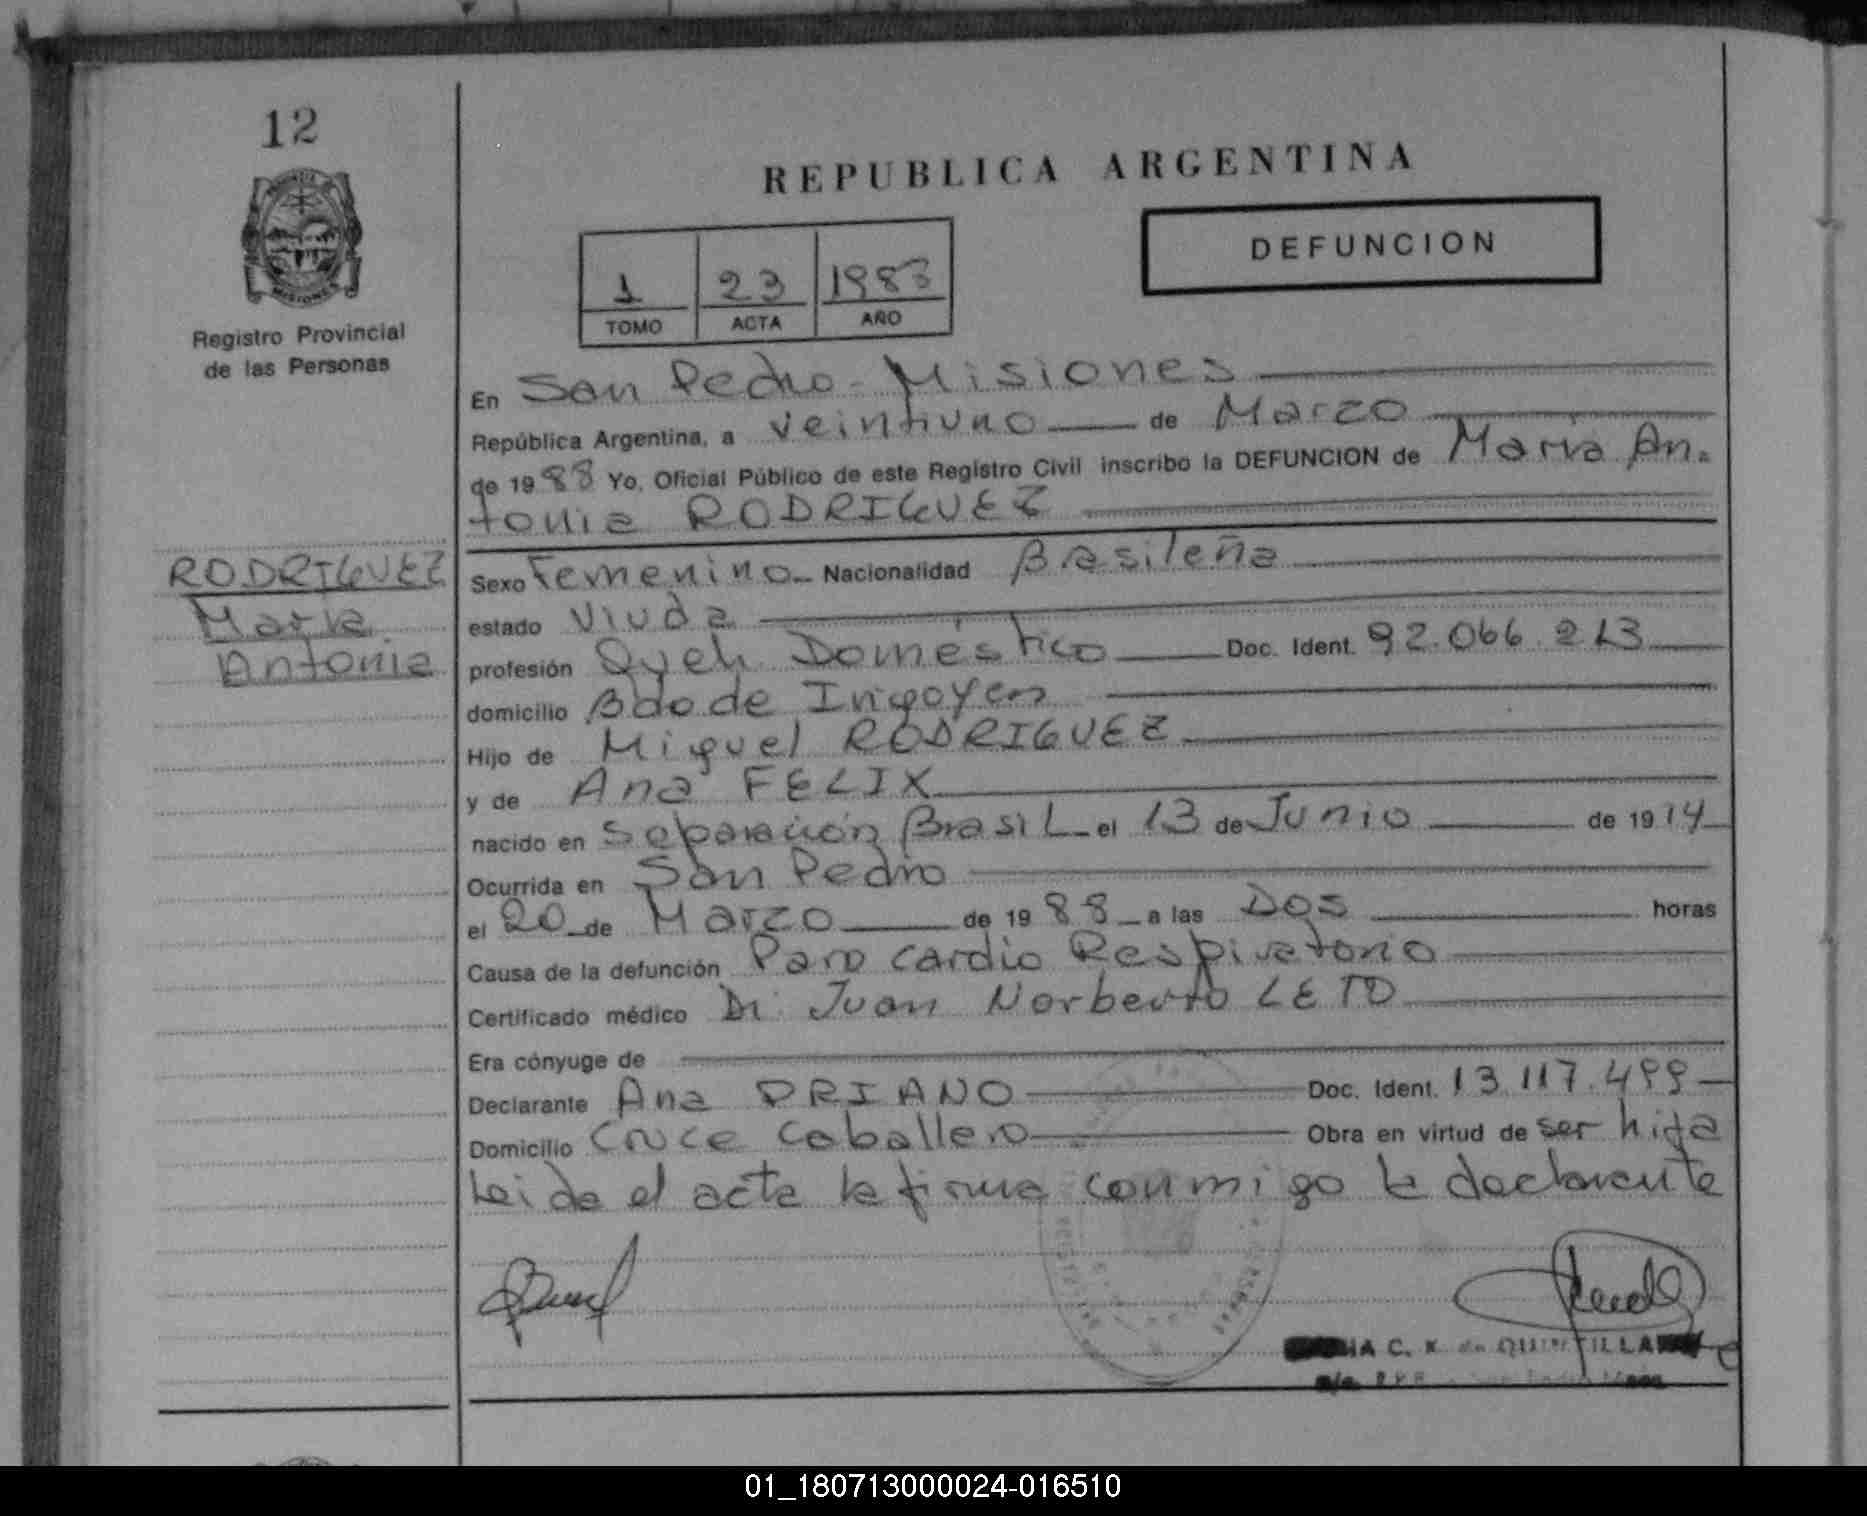 12
REPUBLICA ARGENTINA
Registro Provincial
de las Personas
1 23 1983
TOMO ACTA AÑO
DEFUNCION
En San Pedro - Misiones
República Argentina, a veintiuno de Marzo
de 1988 Yo, Oficial Público de este Registro Civil inscribo la DEFUNCION de Maria An=
tonia RODRIGUEZ
RODRIGUEZ
Maria
Antonia
Sexo Femenino Nacionalidad Brasileña
estado Viuda
profesión Queh. Doméstico Doc. Ident. 92.066.213
domicilio Bdo de Irigoyen
Hijo de Miguel RODRIGUEZ
y de Ana FELIX
nacido en Separación Brasil el 13 de Junio de 1914
Ocurrida en San Pedro
el 20 de Marzo de 1988 a las Dos horas
Causa de la defunción Paro cardio Respiratorio
Certificado médico Dr. Juan Norberto LETO
Era cónyuge de
Declarante Ana DRIANO Doc. Ident. 13.117.499
Domicilio Cruce Caballero Obra en virtud de ser hija
Leida el acta la firma conmigo la declarante
C. K. de QUINTILLA
01_180713000024-016510